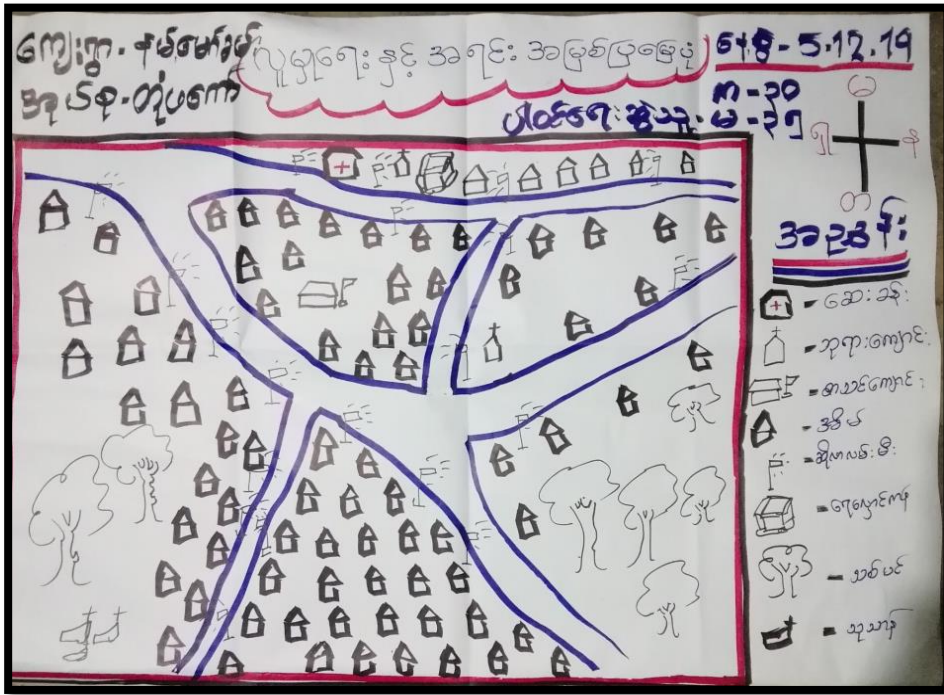 ကျေးရွာ - နမ်မော်ခမ်း
အုပ်စု - တုံပကော်
လူမှုရေး နှင့် အရင်း အမြစ်ပြမြေပုံ
နေ့စွဲ - 5.12.19
ပါဝင်ရေး ဆွဲသူ - မ - ၃၅
ကာ - ၃၀
မ
ရှ
န
တ
အညွှန်း
- ဆေးခန်း
- ဘုရားကျောင်း
= စာသင်ကျောင်း
- အိမ်
= ဆိုလာလမ်းမီး
= ရေလှောင်ကန်
- သစ်ပင်
= သုသာန်